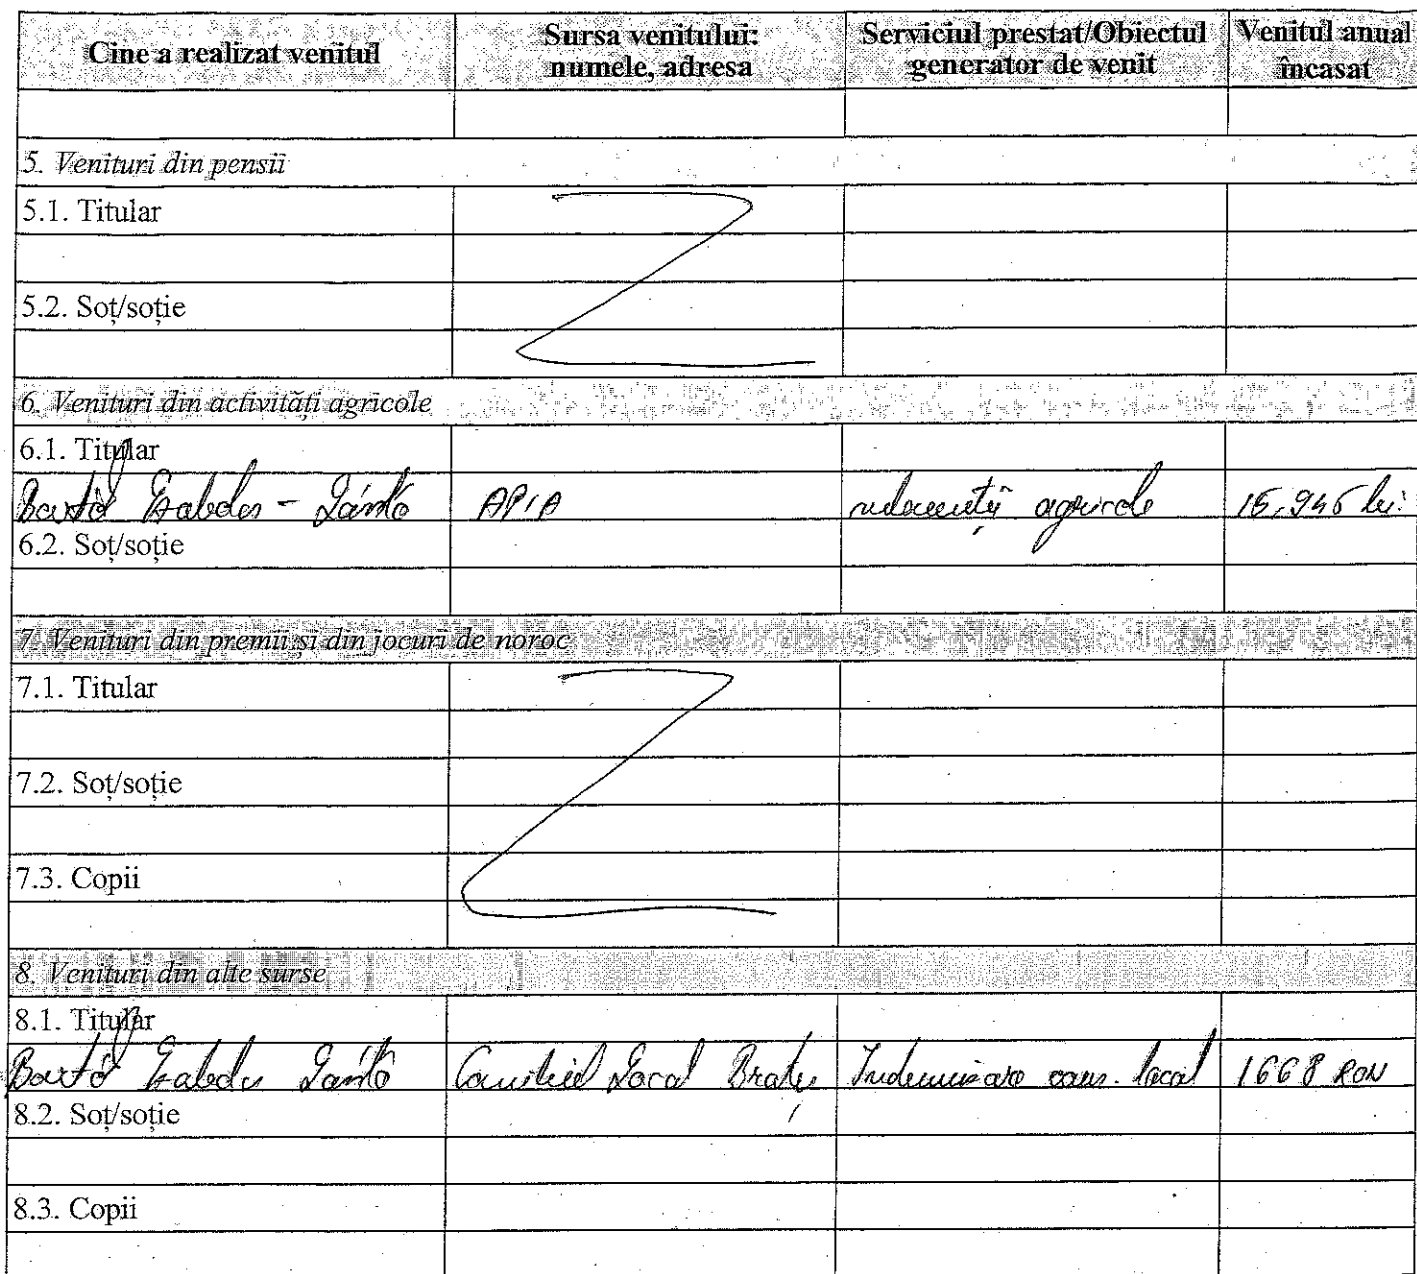 Cine a realizat venitul
Sursa venitului: numele, adresa
Serviciul prestat/Obiectul generator de venit
Venitul anual încasat
5. Venituri din pensii
5.1. Titular
5.2. Soț/soție
6. Venituri din activități agricole
6.1. Titular
APIA agricole lei
6.2. Soț/soție
7. Venituri din premii și din jocuri de noroc
7.1. Titular
7.2. Soț/soție
7.3. Copii
8. Venituri din alte surse
8.1. Titular
Local cons. local 1668 RON
8.2. Soț/soție
8.3. Copii